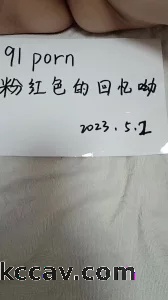 91 porn
粉红色的回忆呦
2023.5.1
kccav.com